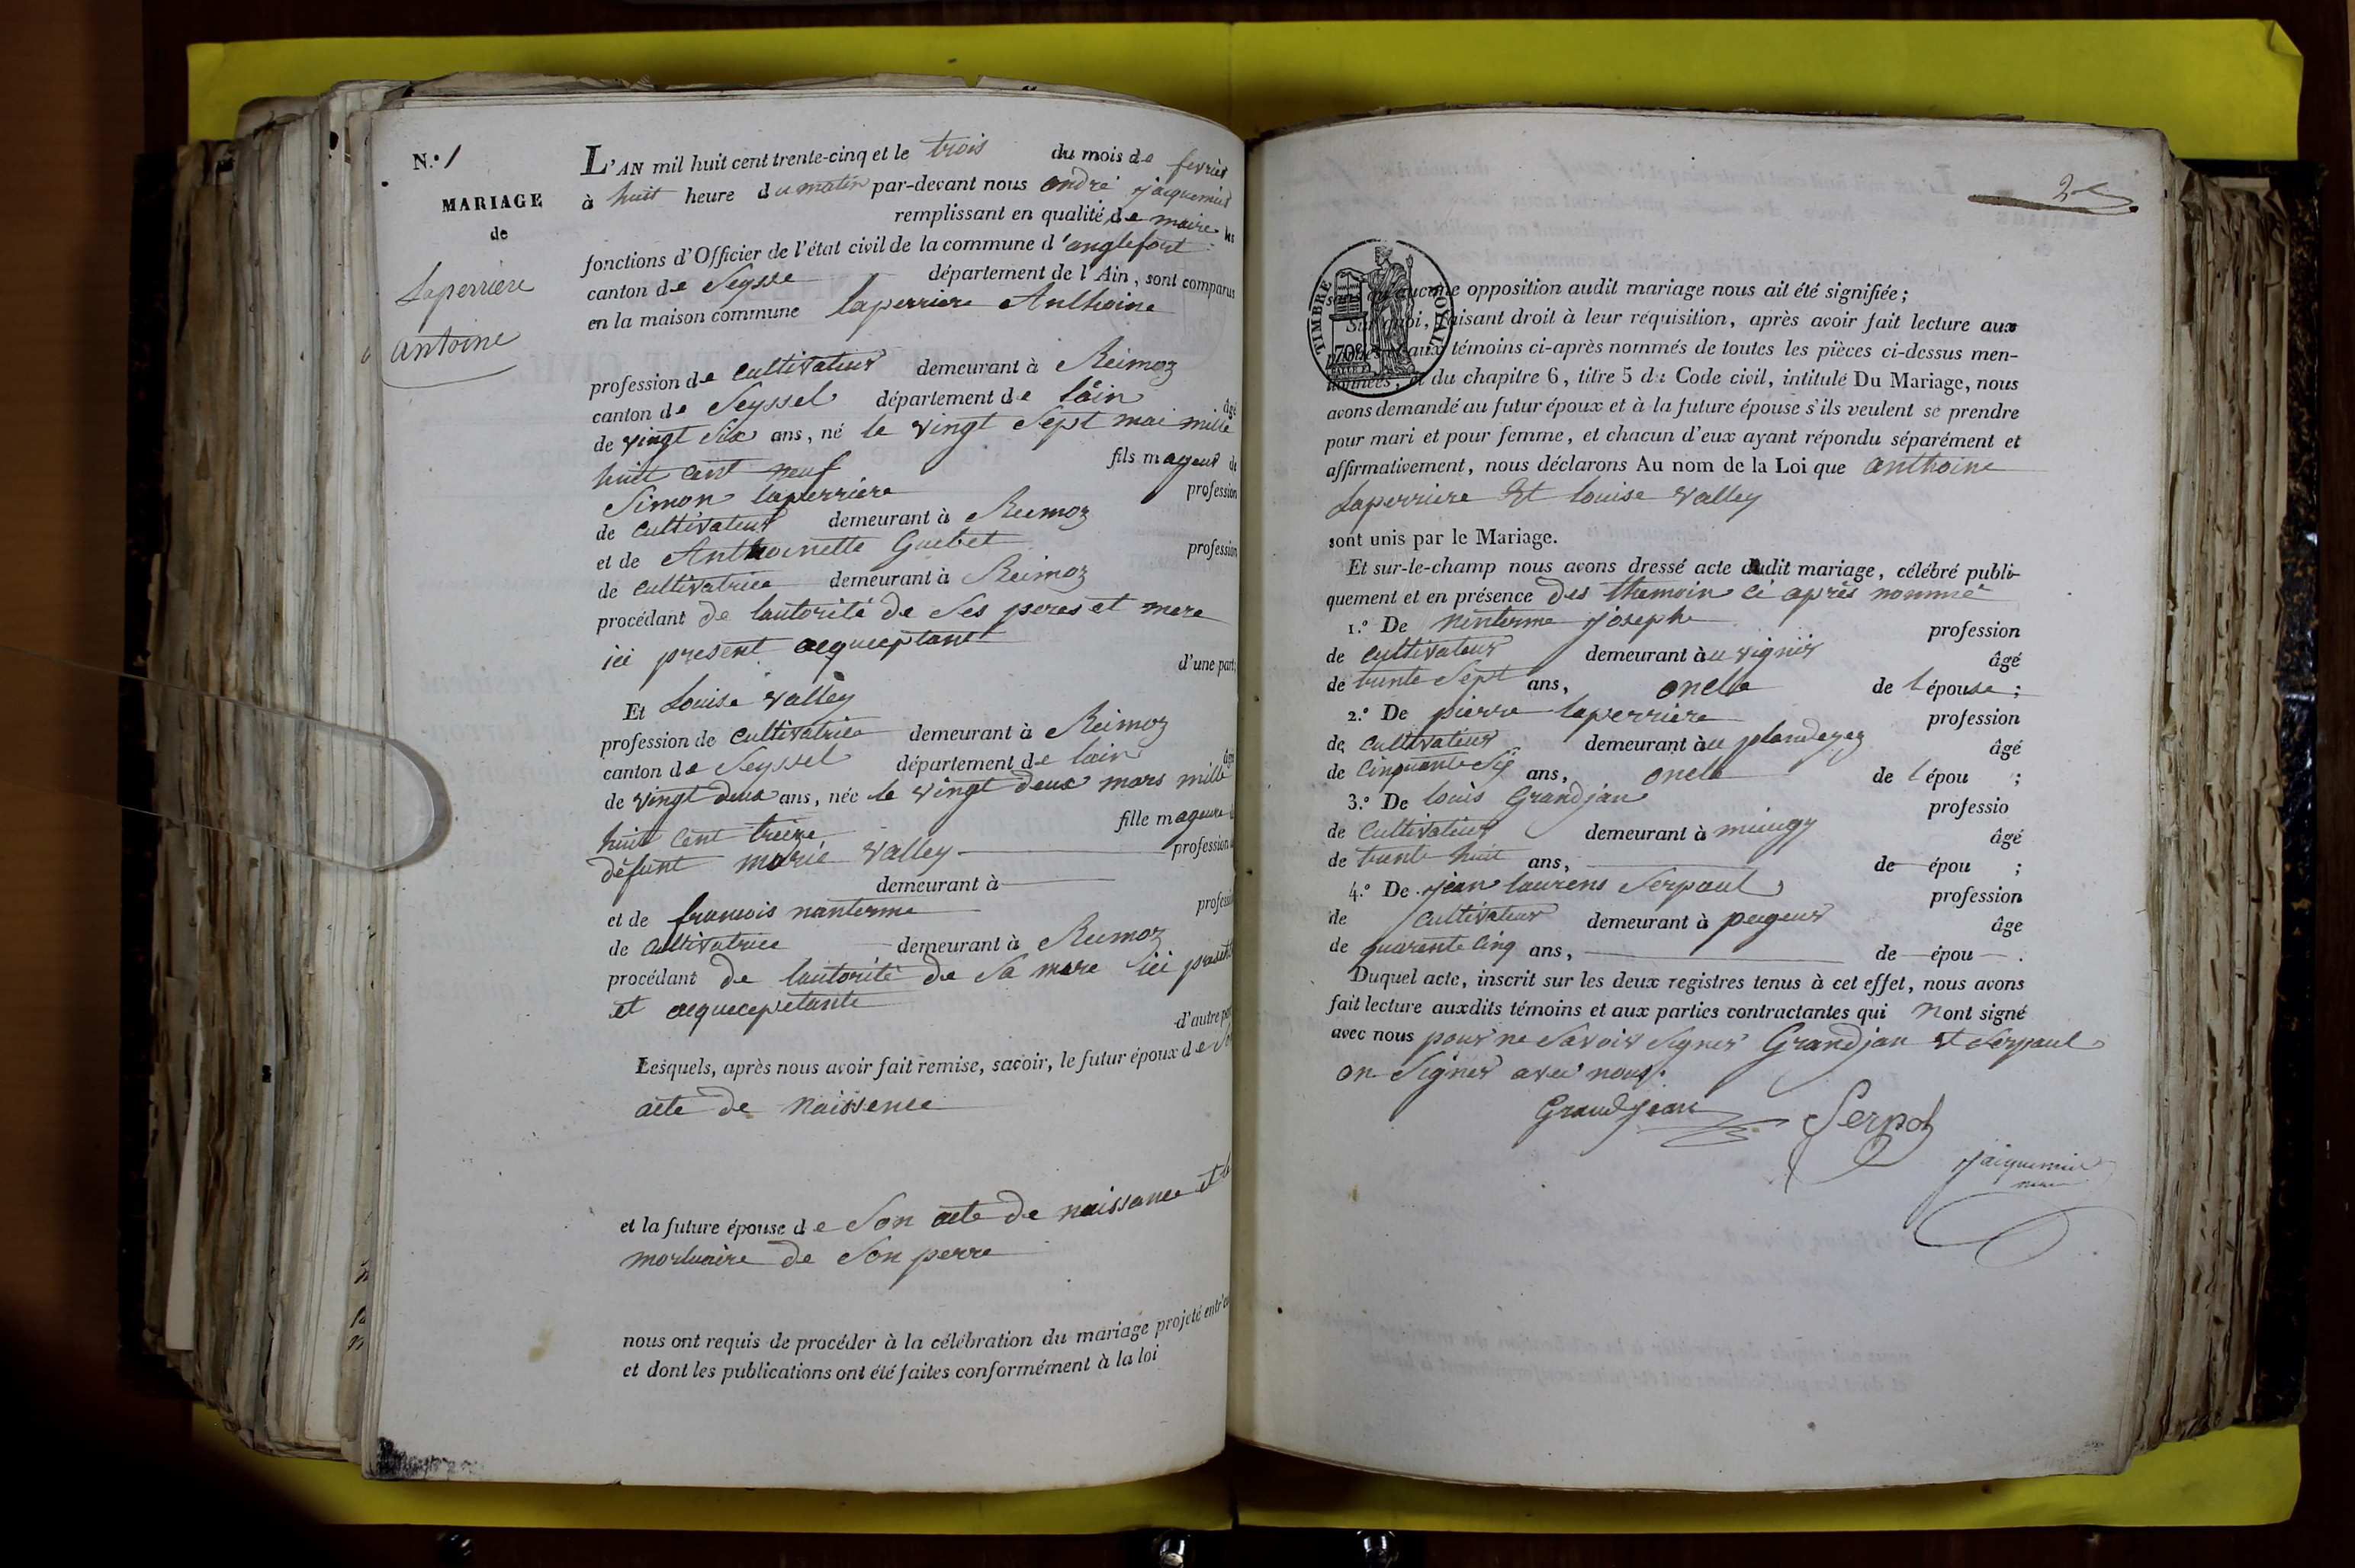 N.º 1
MARIAGE
de
Laperriere
antoine
L'AN mil huit cent trente-cinq et le trois du mois de fevrier
à huit heure du matin par-devant nous andré jacquemier
remplissant en qualité de maire les
fonctions d'Officier de l'état civil de la commune d'anglefort
canton de Seysse département de l'Ain, sont comparus
en la maison commune laperriere Anthoine
profession de cultivateur demeurant à Reimoz
canton de Seyssel département de lain âgé
de vingt six ans, né le vingt sept mai mille
huit cent neuf fils mageur de
Simon laperriere profession
de cultivateur demeurant à Reimoz
et de Anthoinette Guebet profession
de cultivatrice demeurant à Reimoz
procédant de lautorité de Ses peres et mere
ici present acqueptant
d'une part;
Et Louise valley
profession de cultivatrice demeurant à Reimoz
canton de Seyssel département de lain âgé
de vingt deux ans, née le vingt deux mars mille
huit cent treize fille mageure
défunt marie valley profession
demeurant à
et de francois nanterme
de cultivatrice demeurant à Reimoz
procédant de lautorité de Sa mere ici presente
et acqueceptante
d'autre part
Lesquels, après nous avoir fait remise, savoir, le futur époux de
acte de naissence
et la future épouse de Son acte de naissance et
mortuaire de Son perre
nous ont requis de procéder à la célébration du mariage projeté entr'eux
et dont les publications ont été faites conformément à la loi
2e
TIMBRE ROYAL
70c
sans qu'aucune opposition audit mariage nous ait été signifiée;
Sur quoi, faisant droit à leur réquisition, après avoir fait lecture aux
parties et aux témoins ci-après nommés de toutes les pièces ci-dessus men-
tionnées, et du chapitre 6, titre 5 du Code civil, intitulé Du Mariage, nous
avons demandé au futur époux et à la future épouse s'ils veulent se prendre
pour mari et pour femme, et chacun d'eux ayant répondu séparément et
affirmativement, nous déclarons Au nom de la Loi que anthoine
Laperriere Et louise valley
sont unis par le Mariage.
Et sur-le-champ nous avons dressé acte dudit mariage, célébré publi-
quement et en présence des themoin ci après nommé
1.º De nenterme joseph profession
de cultivateur demeurant àu vignis âgé
de trente Sept ans, oncle de lépouse;
2.º De pierre laperriere profession
de cultivateur demeurant àu âgé
de Cinquante Six ans, oncle de lépou ;
3.º De louis Grandjan professio
de cultivateur demeurant à âgé
de trente huit ans, de épou ;
4.º De jean laurens Serpaul profession
de cultivateur demeurant à âge
de quarente cinq ans, de épou .
Duquel acte, inscrit sur les deux registres tenus à cet effet, nous avons
fait lecture auxdits témoins et aux parties contractantes qui nont signé
avec nous pour ne Savoir Signer Grandjan et Serpaul
on Signer avec nous.
Grandjean Serpol
jacquemier
maire